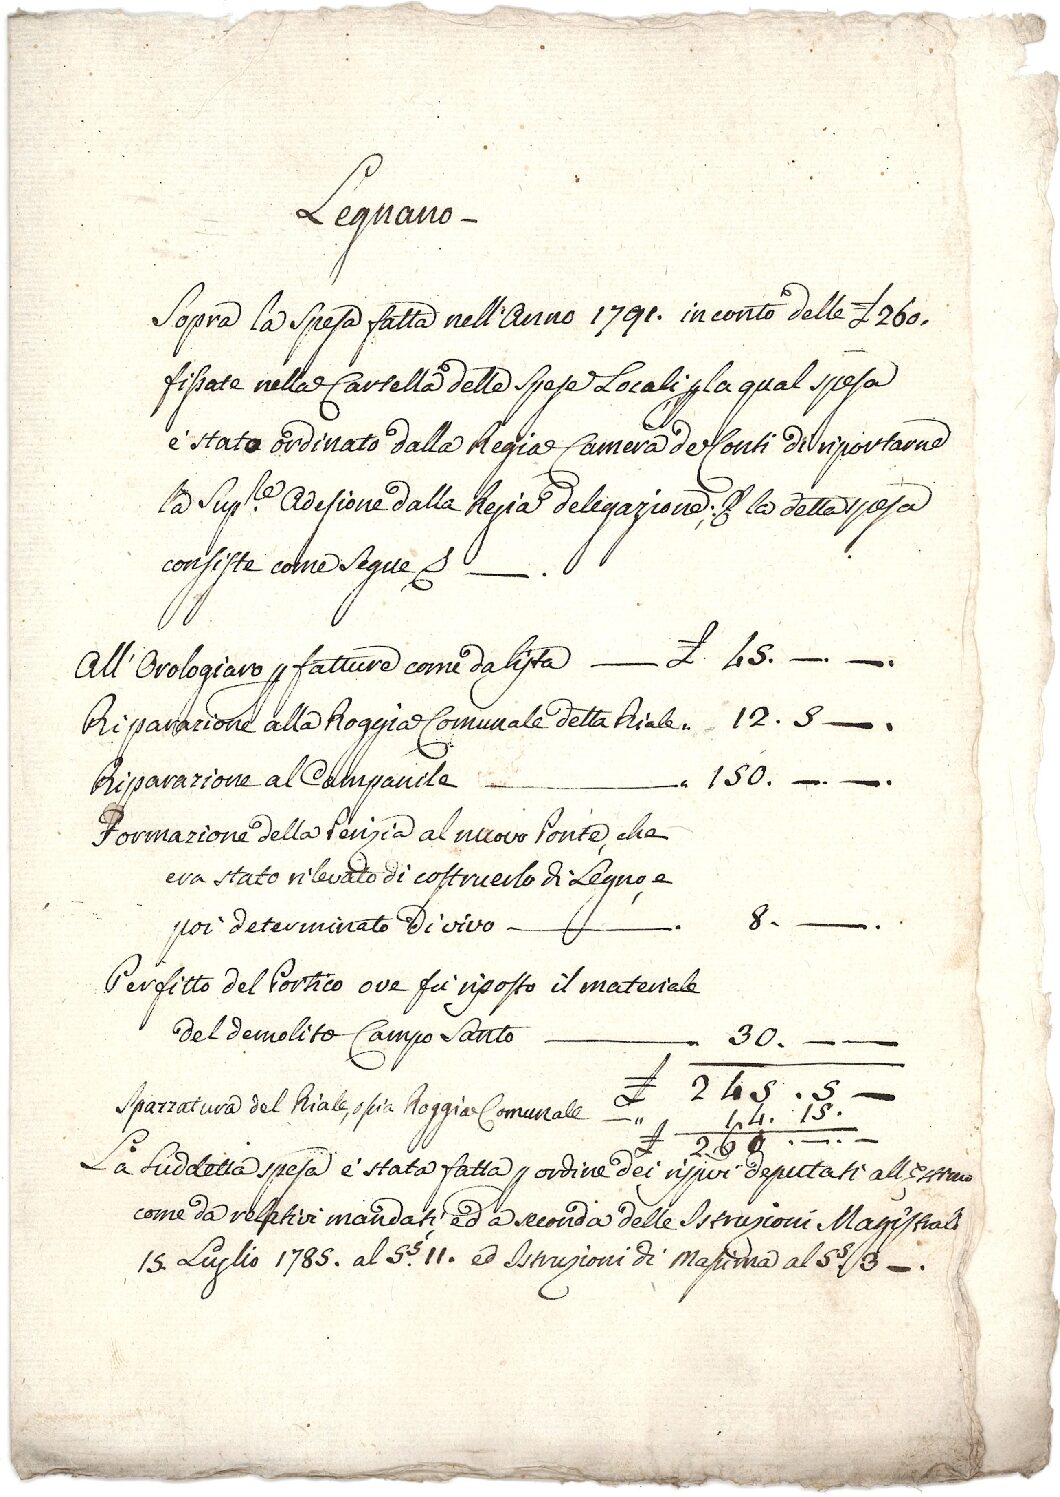 Legnano -
Sopra la Spesa fatta nell'Anno 1791. in conto delle £ 260.
fissate nella Cartella delle Spese Locali, p la qual spesa
è stato ordinato dalla Regia Camera de Conti di riportarne
la Sup.le Adesione dalla Regia delegazione; E la detta spesa
consiste come Segue —.
All'Orologiaro p fatture come da lista — £ 45. —. —.
Riparazione alla Roggia Comunale detta Riale „ 12. 5 —.
Riparazione al Campanile — „ 150. —. —.
Formazione della Perizia al nuovo Ponte, che
era stato rilevato di costruerlo di Legno, e
poi determinato di vivo —. 8. —.
Perfitto del Portico ove fù riposto il materiale
del demolito Campo Santo —. 30. — —
£ 245. 5 —
Spazzatura del Riale, ossia Roggia Comunale — „ 14. 15.
£ 260. —. —
La Suddetta spesa è stata fatta p ordine dei rispivi deputati all'Estimo
come da relativi mandati ed a seconda delle Istruzioni Magistrali
15. Luglio 1785. al §§. 11. ed Istruzioni di Massima al §§. 3 —.